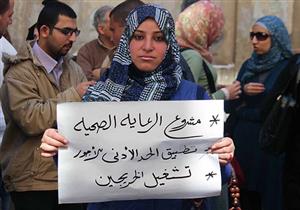 * مشروع الرعاية الصحية
* تطبيق الحد الأدنى للأجور
* تشغيل الخريجين